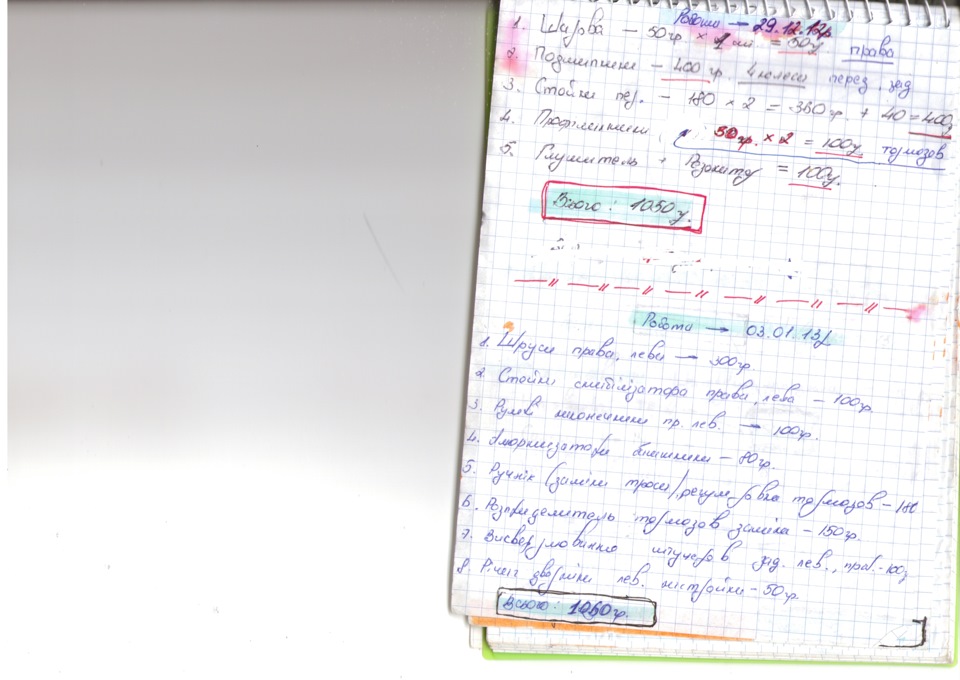 Роботи — 29.12.12р
1. Шарова — 50гр. × 1 шт. = 50г права
2. Подшипники — 400 гр. 4 колеса перед, зад
3. Стойки пер. — 180 × 2 = 360гр. + 40 = 400г
4. 50гр. × 2 = 100г тормозов
5. Глушитель + = 100г.
Всього: 1050г.
Роботи → 03.01.13р
1. Шруси права, лева — 300гр.
2. Стойки стабілізатора права, лева — 100гр.
3. Рулеві наконечники пр. лев. → 100гр.
4. Аморкизатори багажника — 80гр.
5. Ручнік (заміна троса) регулировка тормозов — 180
6. Розприделитель тормозов заміна — 150гр.
7. Висверлювання штуцеров зад. лев., прав. - 100г
8. двєрки лев. настройка — 50гр.
Всього: 1060гр.